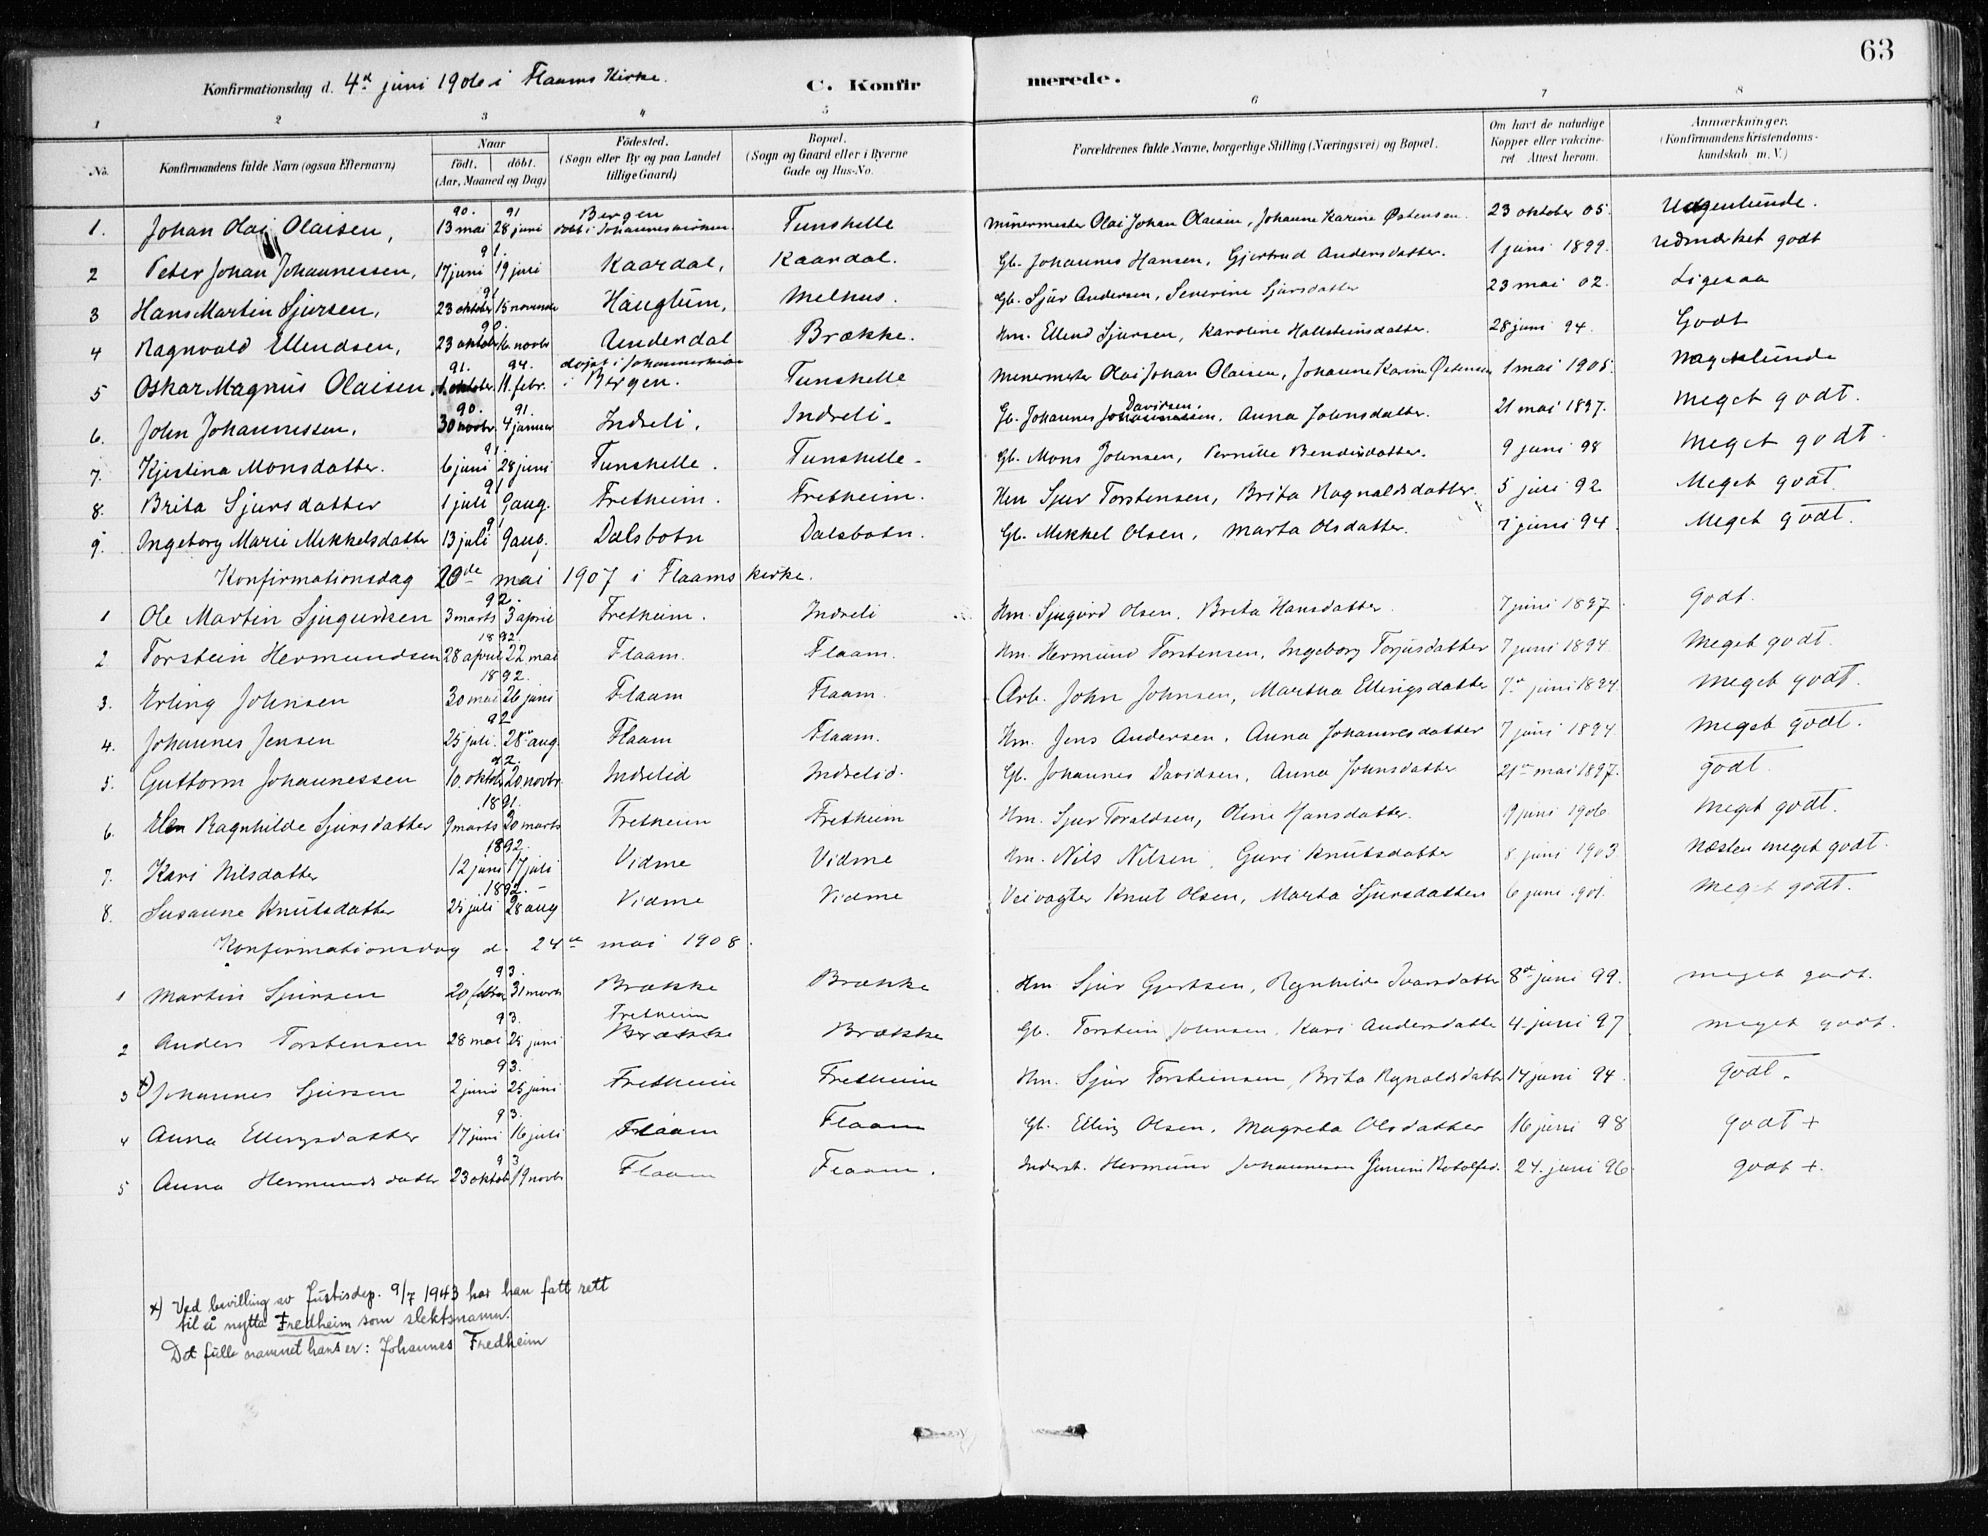 63
Konfirmationsdag d. 4de juni 1906 i Flaams Kirke. C. Konfirmerede.
1 2 3 4 5 6 7 8
No. Konfirmandens fulde Navn (ogsaa Efternavn) Naar født. døbt. (Aar, Maaned og Dag) Fødested. (Sogn eller By og paa Landet tillige Gaard) Bopæl. (Sogn og Gaard eller i Byerne Gade og Hus-No. Forældrenes fulde Navne, borgerlige Stilling (Næringsvei) og Bopæl. Om havt de naturlige Kopper eller vakcineret Attest herom. Anmærkninger. (Konfirmandens Kristendomskundskab m. V.)
1. Johan Olai Olaisen, 90. 13 mai 91 28 juni Bergen døbt i Johanneskirken. Tunshelle Minermester Olai Johan Olaisen, Johanne Karine Østensen. 23 oktober 05.
2 Peter Johan Johannessen, 91. 17 juni 19 juli Kaardal, Kaardal. Gb. Johannes Hansen, Gjertrud Andersdatter. 1 juni 1899. Udmærket godt
3 Hans Martin Sjursen, 91 23 oktober 15 november Haugtum, Melhus. Gb. Sjur Andersen, Severine Sjursdatter 23 mai 02. Ligesaa
4 Ragnvald Ellendsen, 90. 23 oktober 16 novbr Undendal Brække. Hm. Ellend Sjursen, Karoline Hallsteinsdatter. 28 juni 94. Godt
5 Oskar Magnus Olaisen 91. 1. oktober 94. 11. febr. døpt i Johanneskirken i Bergen. Tunshelle Minermester Olai Johan Olaisen, Johanne Karine Østensen 1 mai 1905.
6. John Johannessen, 90. 30 novbr 91. 4 januar Indreli, Indreli. Gb. Johannes Johannessen Davidsen. Anna Johnsdatter. 21 mai 1897. Meget godt.
7. Kjestina Monsdatter. 91. 6 juni 28 juni Tunshelle. Tunshelle. Gb. Mons Johnsen, Pernille Bendiksdatter. 9 juni 98 Meget godt.
8. Brita Sjursdatter 91 1 juli 9 aug. Fretheim. Fretheim. Hm Sjur Torstensen, Brita Ragnaldsdatter. 5 juni 92 Meget godt.
9. Ingeborg Marie Mikkelsdatter 91 13 juli 9 aug. Dalsbotn Dalsbotn. Gb. Mikkel Olsen, Marta Olsdatter. 7 juni 94. Meget godt.
Konfirmationsdag 20de mai 1907 i Flaams kirke.
1 Ole Martin Sjugurdsen 92. 3 marts 3 april Fretheim. Indreli Hm. Sjugurd Olsen. Brita Hansdatter. 7 juni 1897. godt.
2. Torstein Hermundsen 1892. 28 april 22 mai Flaam. Flaam. Hm. Hermund Torstensen, Ingeborg Torjusdatter 7 juni 1894. Meget godt.
3. Erling Johnsen 1892. 30 mai 26 juni Flaam Flaam. Arb. John Johnsen, Martha Ellingsdatter 7de juni 1894. meget godt.
4. Johannes Jensen 92 25 juli. 28de aug. Flaam Flaam. Hm. Jens Andersen, Anna Johannesdatter 7 juni 1894 meget godt.
5. Guttorm Johannessen 92. 10. oktober 20. novbr. Indrelid Indrelid. Gb. Johannes Davidsen, Anna Johnsdatter 21de mai 1897. godt.
6. Elen Ragnhilde Sjursdatter 1891. 9 marts 30 marts Fretheim Fretheim Hm. Sjur Toraldsen, Oline Hansdatter. 9 juni 1906 meget godt.
7. Kari Nilsdatter 1892. 12 juni 17 juli Vidme Vidme Hm. Nils Nilsen, Guri Knutsdatter 8 juni 1903. Næsten meget godt.
8. Susanne Knutsdatter 1892. 25 juli 28 aug Vidme Vidme Veivagter Knut Olsen, Marta Sjursdatter 6 juni 901. meget godt.
Konfirmationsdag d. 24de mai 1908.
1 Martin Sjursen 93. 20 februar 31 marts Brække Brække Hm Sjur Gjertsen, Ragnhilde Ivarsdatter 8de juni 99. meget godt.
2 Anders Torstensen 93. 28 mai 25 juni Fretheim Brække Brække Gb. Torstein Johnsen, Kari Andersdatter 4. juni 97 meget godt.
3 x) Johannes Sjursen 93. 2 juni 25 juni Fretheim Fretheim Hm. Sjur Torsteinsen, Brita Ragnaldsdatter 14 juni 94. godt.
4 Anna Ellingsdatter 93. 17 juni 16 juli Flaam Flaam Gb. Elling Olsen, Magreta Olsdatter 16 juni 98 godt +
5 Anna Hermundsdatter 93 23 oktob 19 novbr Flaam Flaam. Inderst. Hermund Johannessen 24. juni 96. godt +.
x) Ved bevilling av Justisdep. 9/7 1943 har han fatt rett
til å nytta Fredheim som slektsnamn.
Det fulle namnet hans er: Johannes Fredheim